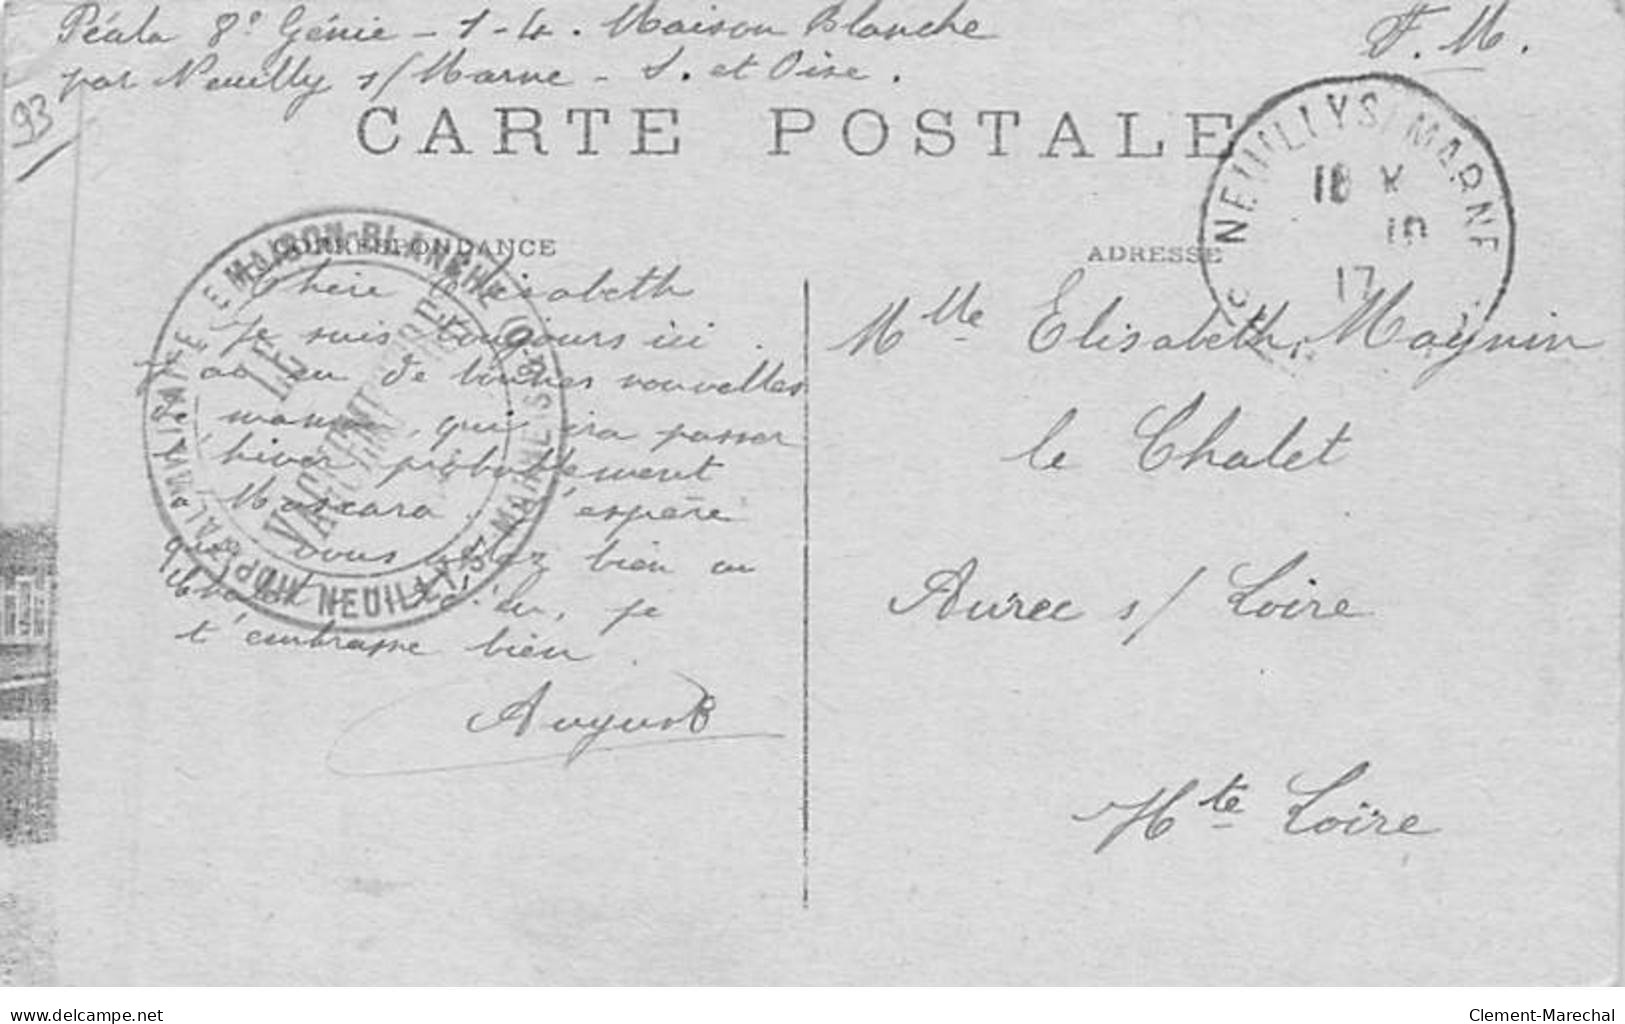 Péala 8e Génie - 1-4. Maison Blanche
par Neuilly s/Marne - S. et Oise.
F. M.
93
CARTE POSTALE
NEUILLY S/ MARNE
18 X
10
17
CORRESPONDANCE
ADRESSE
HOPITAL MILITAIRE DE MAISON-BLANCHE
NEUILLY-S-MARNE S&O
LE VAGUEMESTRE
Chère Elisabeth
Je suis toujours ici.
J'ai eu de bonnes nouvelles
de maman, qui ira passer
l'hiver probablement
à Mascara. J'espère
que vous allez bien au
Chalet. Adieu, je
t'embrasse bien.
August
Mlle Elisabeth Maynin
le Chalet
Aurec s/ Loire
Hte Loire
www.delcampe.net
Clement-Marechal